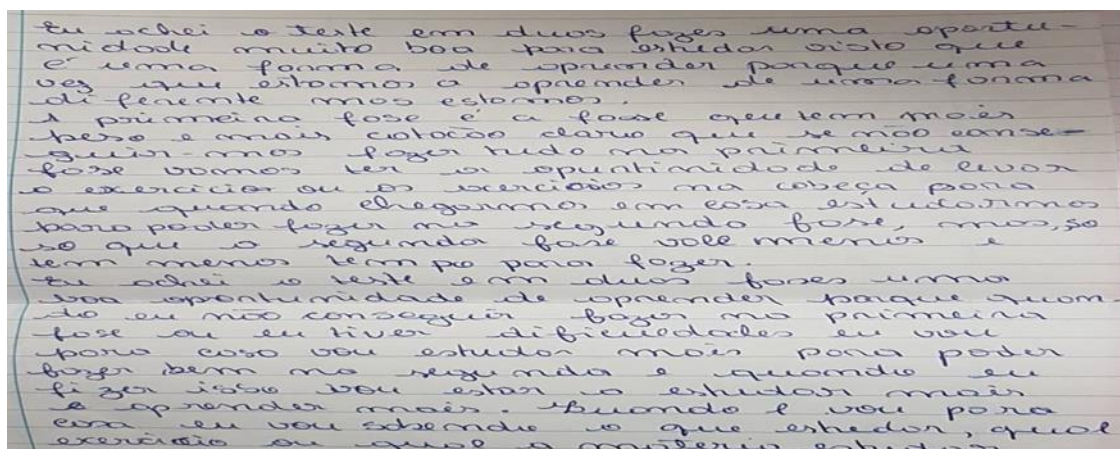 Eu achei o teste em duas fazes uma oportu-
nidade muito boa para estudar visto que
é uma forma de aprender porque uma
vez que estamos a aprender de uma forma
diferente mas estamos.
A primeira fase é a fase que tem mais
peso e mais cotação claro que se não conse-
guir-mos fazer tudo na primeira
fase vamos ter a oportinidade de levar
o exercicio ou os exercicios na cabeça para
que quando chegarmos em casa estudarmos
para poder fazer na segunda fase, mas, so
so que a segunda fase vale menos e
tem menos tempo para fazer.
Eu achei o teste em duas fases uma
boa oportunidade de aprender porque quan
do eu não conseguir fazer na primeira
fase ou eu tiver dificuldades eu vou
para casa vou estudar mais para poder
fazer bem na segunda e quando eu
fizer isso vou estar a estudar mais
e aprender mais. Quando e vou para
casa eu vou sabendo o que estudar, qual
exercicio ou qual a matéria estudar